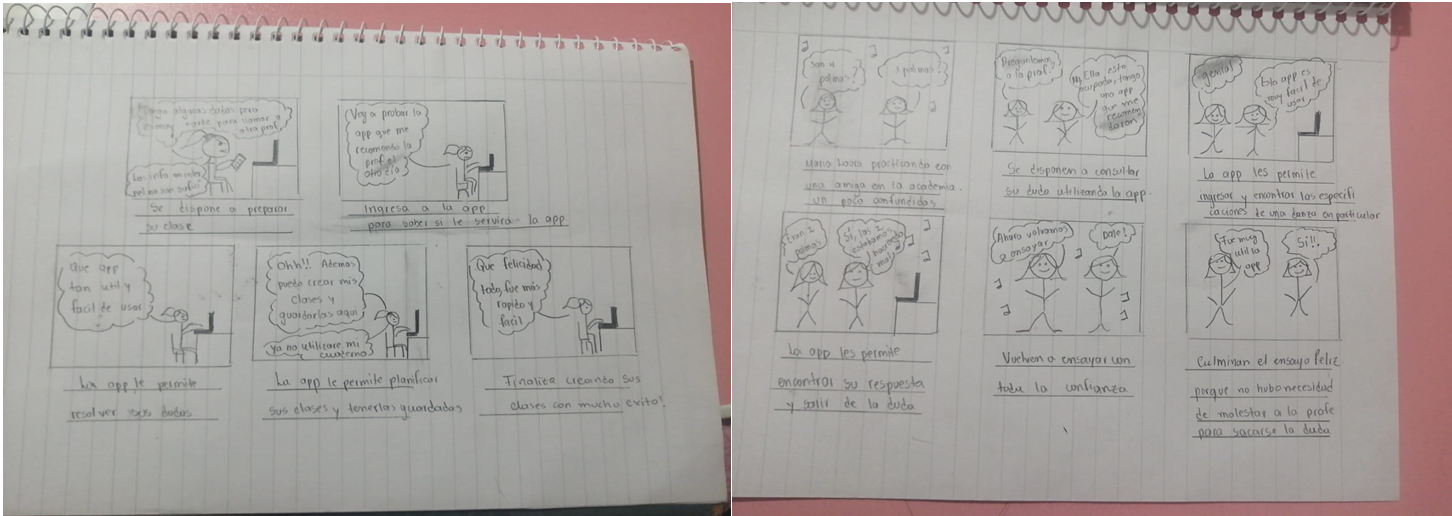 Tengo algunas dudas pero
es muy tarde para llamar a
otra prof.
Los info en inter
net no son sufici
Se dispone a preparar
su clase
Voy a probar la
app que me
recomendo la
prof el
otro día
Ingresa a la app
para saber si le servirá la app
Que app
tan util y
facil de usar
La app le permite
resolver sus dudas
Ohh!! Ademas
puedo crear mis
clases y
guardarlas aqui
Ya no utilizare mi
cuaderno
La app le permite planificar
sus clases y tenerlas guardadas
Que felicidad
todo, fue más
rapido y
facil
Finaliza creando sus
clases con mucho exito!
Son 4
palmas?
palmas?
Maria Laura practicando con
una amiga en la academia.
un poco confundidas
Preguntamos
a la prof.
No, Ella esta
ocupada, tengo
una app
que me
recomen
daron
Se disponen a consultar
su duda utilizando la app.
genial
Esta app es
muy facil de
usar
La app les permite
ingresar y encontrar las especifi
caciones de una danza en particular
Eran 2
palmas
Si, las 2
estabamos
haciendo
mal
La app les permite
encontrar su respuesta
y salir de la duda
Ahora volvamos
a ensayar
Dale!
Vuelven a ensayar con
toda la confianza
Fue muy
util la
app
Si!!
Culminan el ensayo feliz
porque no hubo necesidad
de molestar a la profe
para sacarse la duda